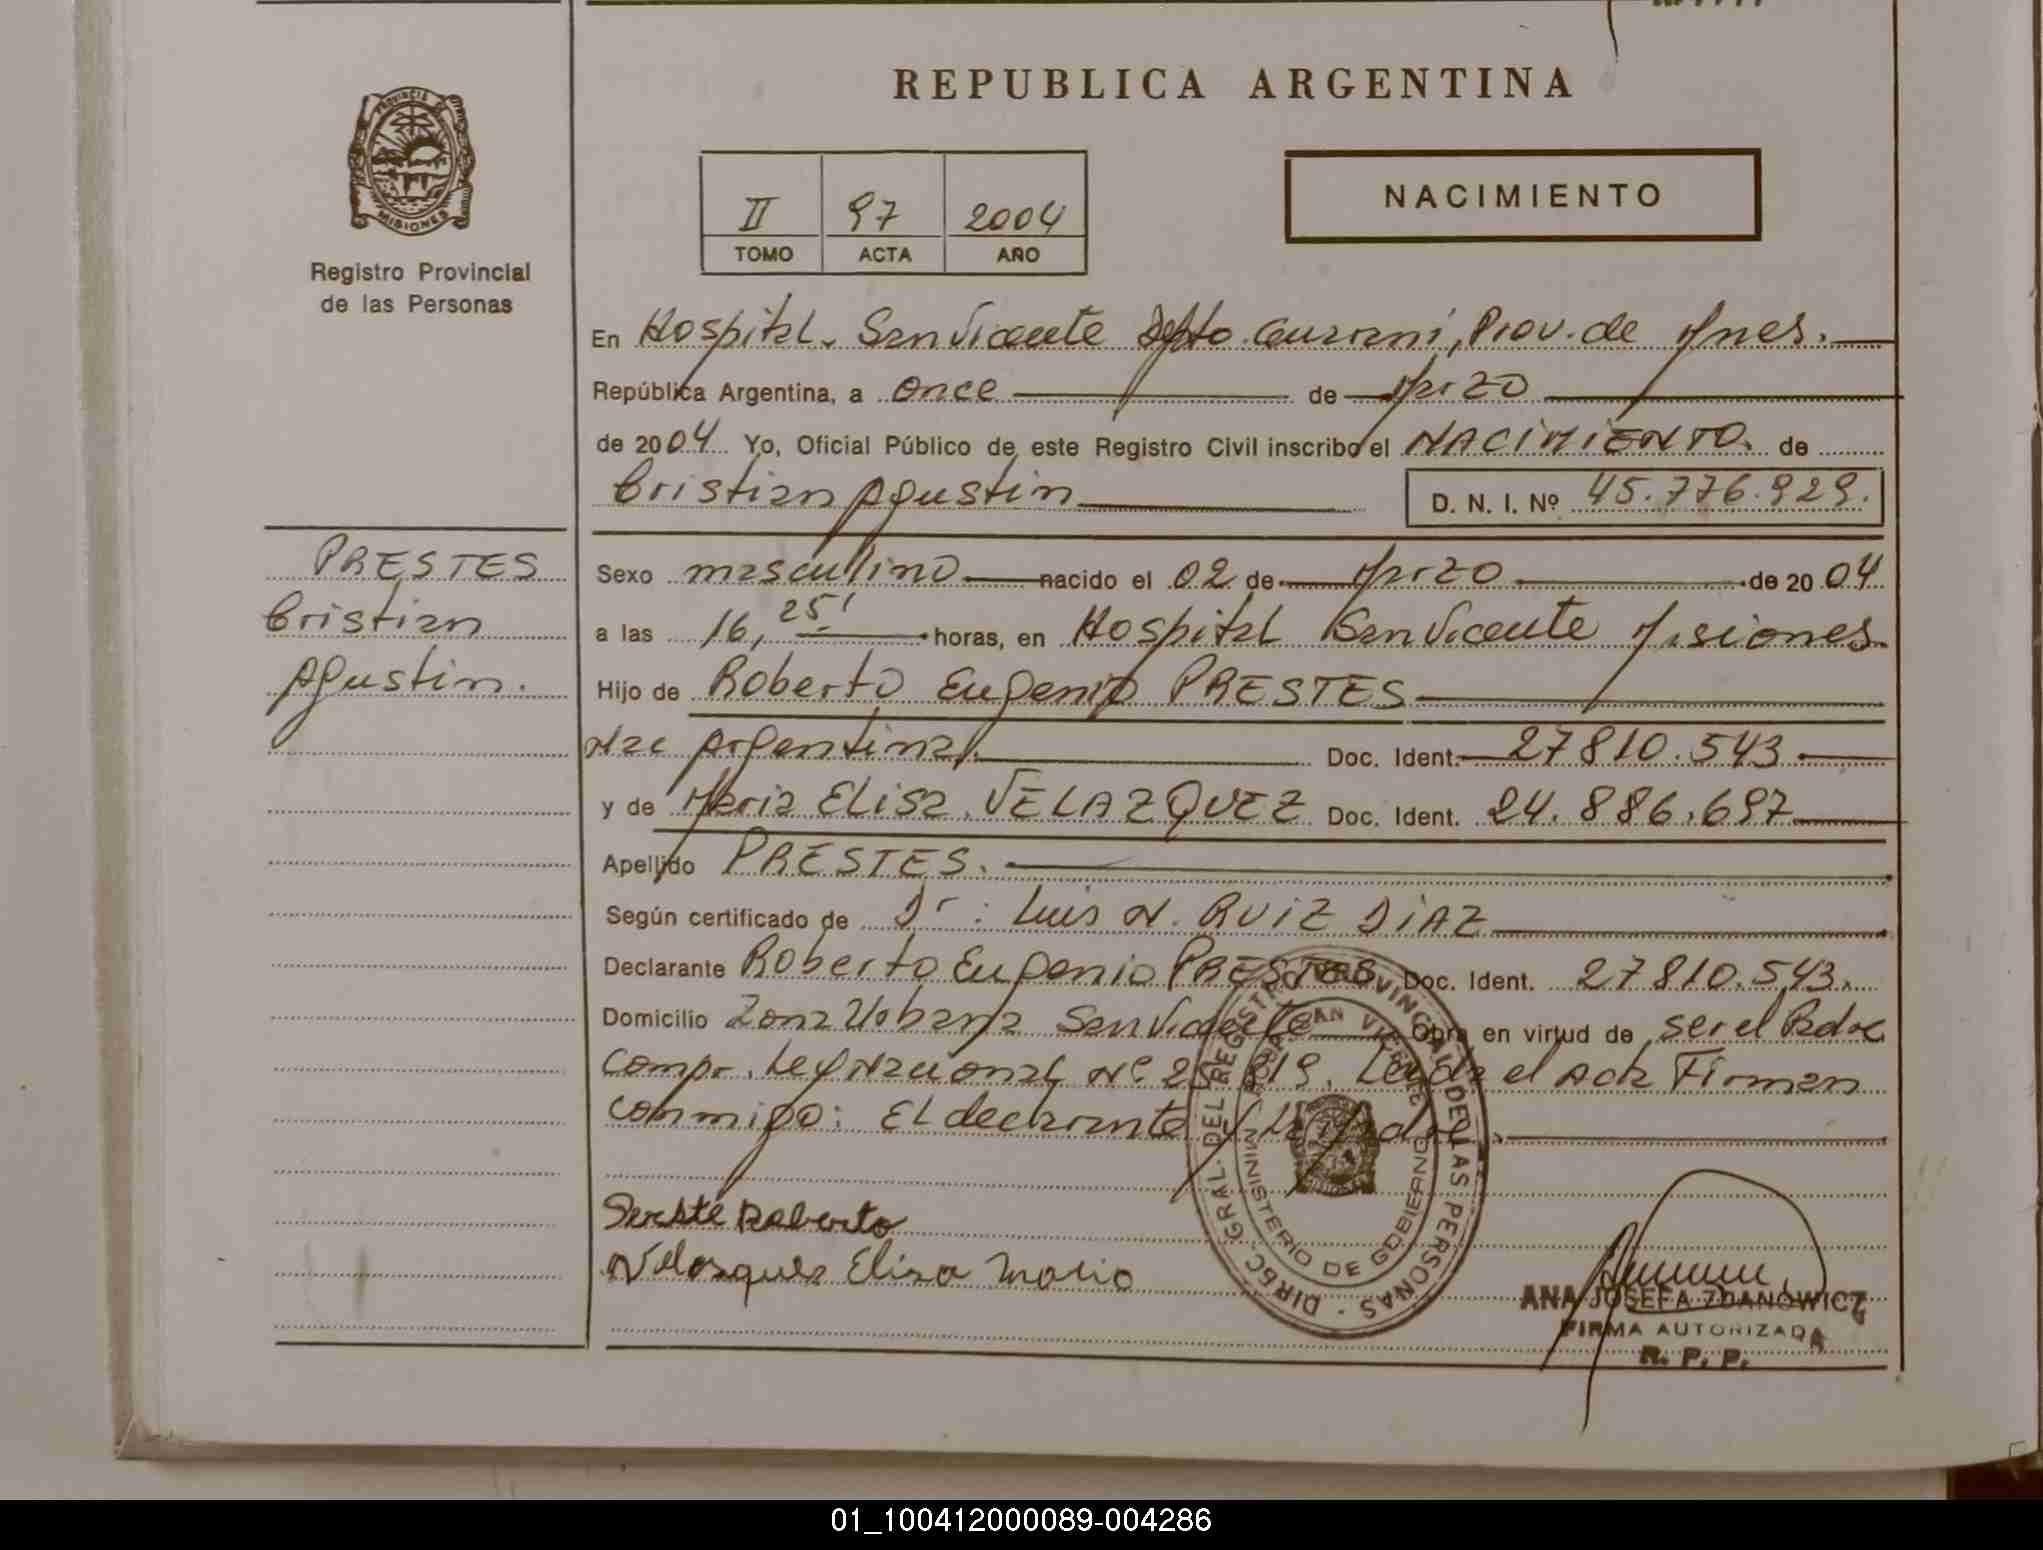 REPUBLICA ARGENTINA
PROVINCIA DE
MISIONES
Registro Provincial
de las Personas
II 97 2004
TOMO ACTA AÑO
NACIMIENTO
En Hospital. San Vicente Dpto. Guarani, Prov. de Mnes.
República Argentina, a once de Marzo
de 2004 Yo, Oficial Público de este Registro Civil inscribo el NACIMIENTO. de
Cristian Agustin D. N. I. Nº 45.776.929.
PRESTES
Cristian
Agustin.
Sexo masculino nacido el 02 de Marzo de 2004
a las 16, 25' horas, en Hospital San Vicente Misiones
Hijo de Roberto Eugenio PRESTES
Nac Argentina. Doc. Ident. 27810.543
y de Maria ELisa. VELAZQUEZ Doc. Ident. 24.886.697
Apellido PRESTES.
Según certificado de Dr: Luis N. RUIZ DIAZ
Declarante Roberto Eugenio PRESTES Doc. Ident. 27810.543.
Domicilio Zona Urbana San Vicente Obra en virtud de ser el Padre
Compr. Ley Nacional Nº 25.819. Leida el Acta Firman
conmigo: EL declarante y la Madre.
Roberto
Velasquez Elisa Maria
DIREC. GRAL. DEL REGISTRO PROVINCIAL DE LAS PERSONAS
SAN VICENTE
MINISTERIO DE GOBIERNO
ANA JOSEFA ZDANOWICZ
FIRMA AUTORIZADA
R. P. P.
01_100412000089-004286